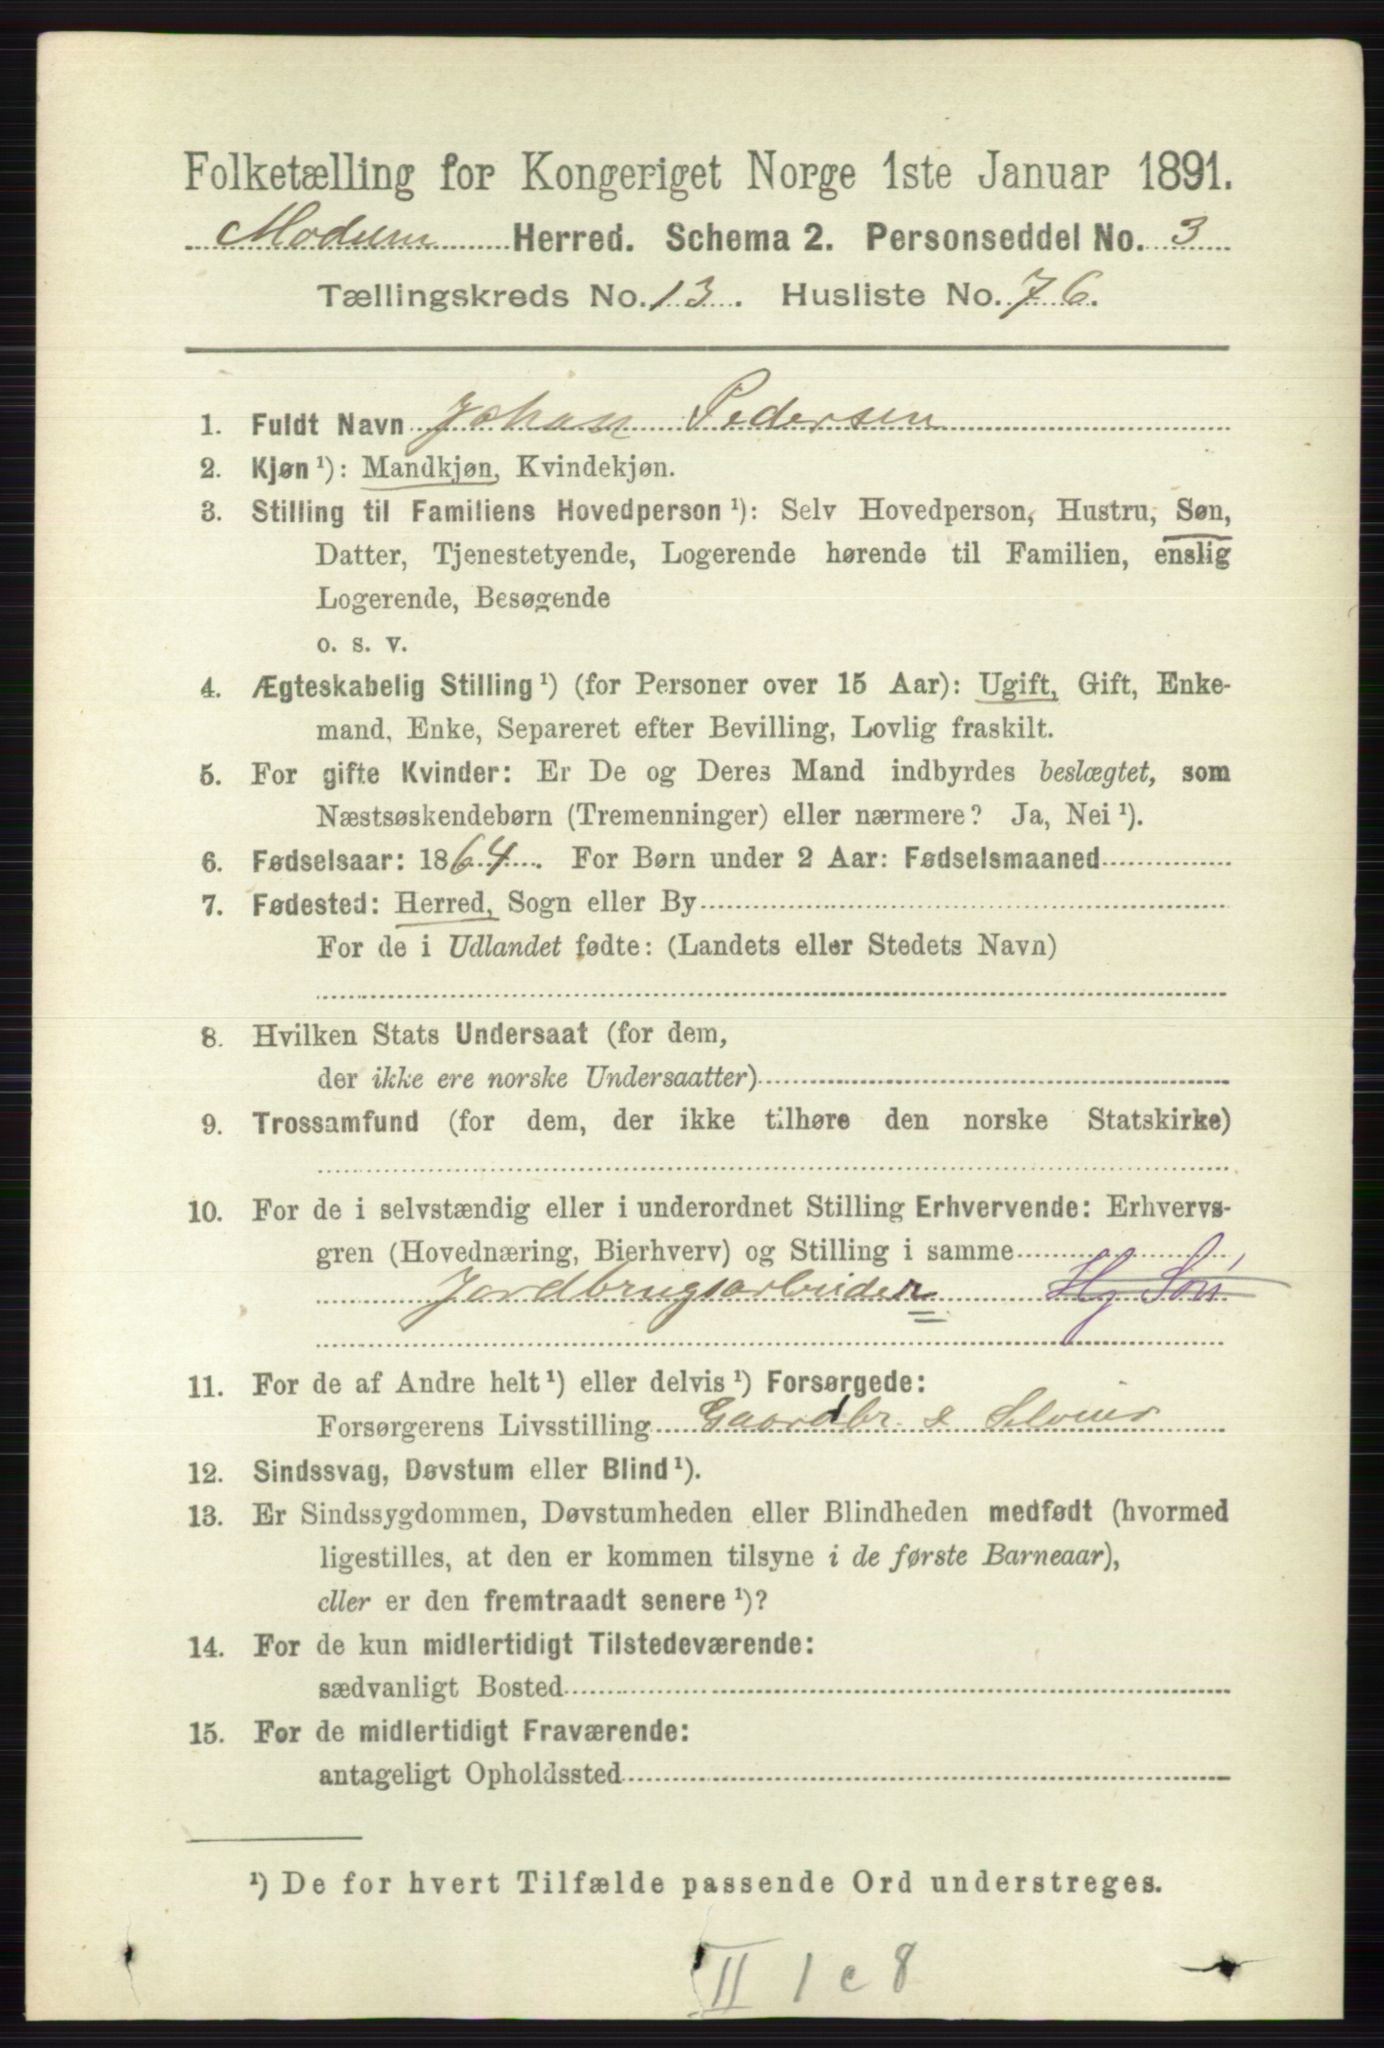 Folketælling for Kongeriget Norge 1ste Januar 1891.
Modum Herred. Schema 2. Personseddel No. 3
Tællingskreds No. 13. Husliste No. 76.
1. Fuldt Navn Johan Pedersen
2. Kjøn ¹): Mandkjøn, Kvindekjøn.
3. Stilling til Familiens Hovedperson ¹): Selv Hovedperson, Hustru, Søn,
Datter, Tjenestetyende, Logerende hørende til Familien, enslig
Logerende, Besøgende
o. s. v.
4. Ægteskabelig Stilling ¹) (for Personer over 15 Aar): Ugift, Gift, Enke-
mand, Enke, Separeret efter Bevilling, Lovlig fraskilt.
5. For gifte Kvinder: Er De og Deres Mand indbyrdes beslægtet, som
Næstsøskendebørn (Tremenninger) eller nærmere? Ja, Nei ¹).
6. Fødselsaar: 1864. For Børn under 2 Aar: Fødselsmaaned
7. Fødested: Herred, Sogn eller By
For de i Udlandet fødte: (Landets eller Stedets Navn)
8. Hvilken Stats Undersaat (for dem,
der ikke ere norske Undersaatter)
9. Trossamfund (for dem, der ikke tilhøre den norske Statskirke)
10. For de i selvstændig eller i underordnet Stilling Erhvervende: Erhvervs-
gren (Hovednæring, Bierhverv) og Stilling i samme
Jordbrugsarbeider Hj Søn
11. For de af Andre helt ¹) eller delvis ¹) Forsørgede:
Forsørgerens Livsstilling Gaardbr. & Selveier
12. Sindssvag, Døvstum eller Blind ¹).
13. Er Sindssygdommen, Døvstumheden eller Blindheden medfødt (hvormed
ligestilles, at den er kommen tilsyne i de første Barneaar),
eller er den fremtraadt senere ¹)?
14. For de kun midlertidigt Tilstedeværende:
sædvanligt Bosted
15. For de midlertidigt Fraværende:
antageligt Opholdssted
¹) De for hvert Tilfælde passende Ord understreges.
II 1 c 8